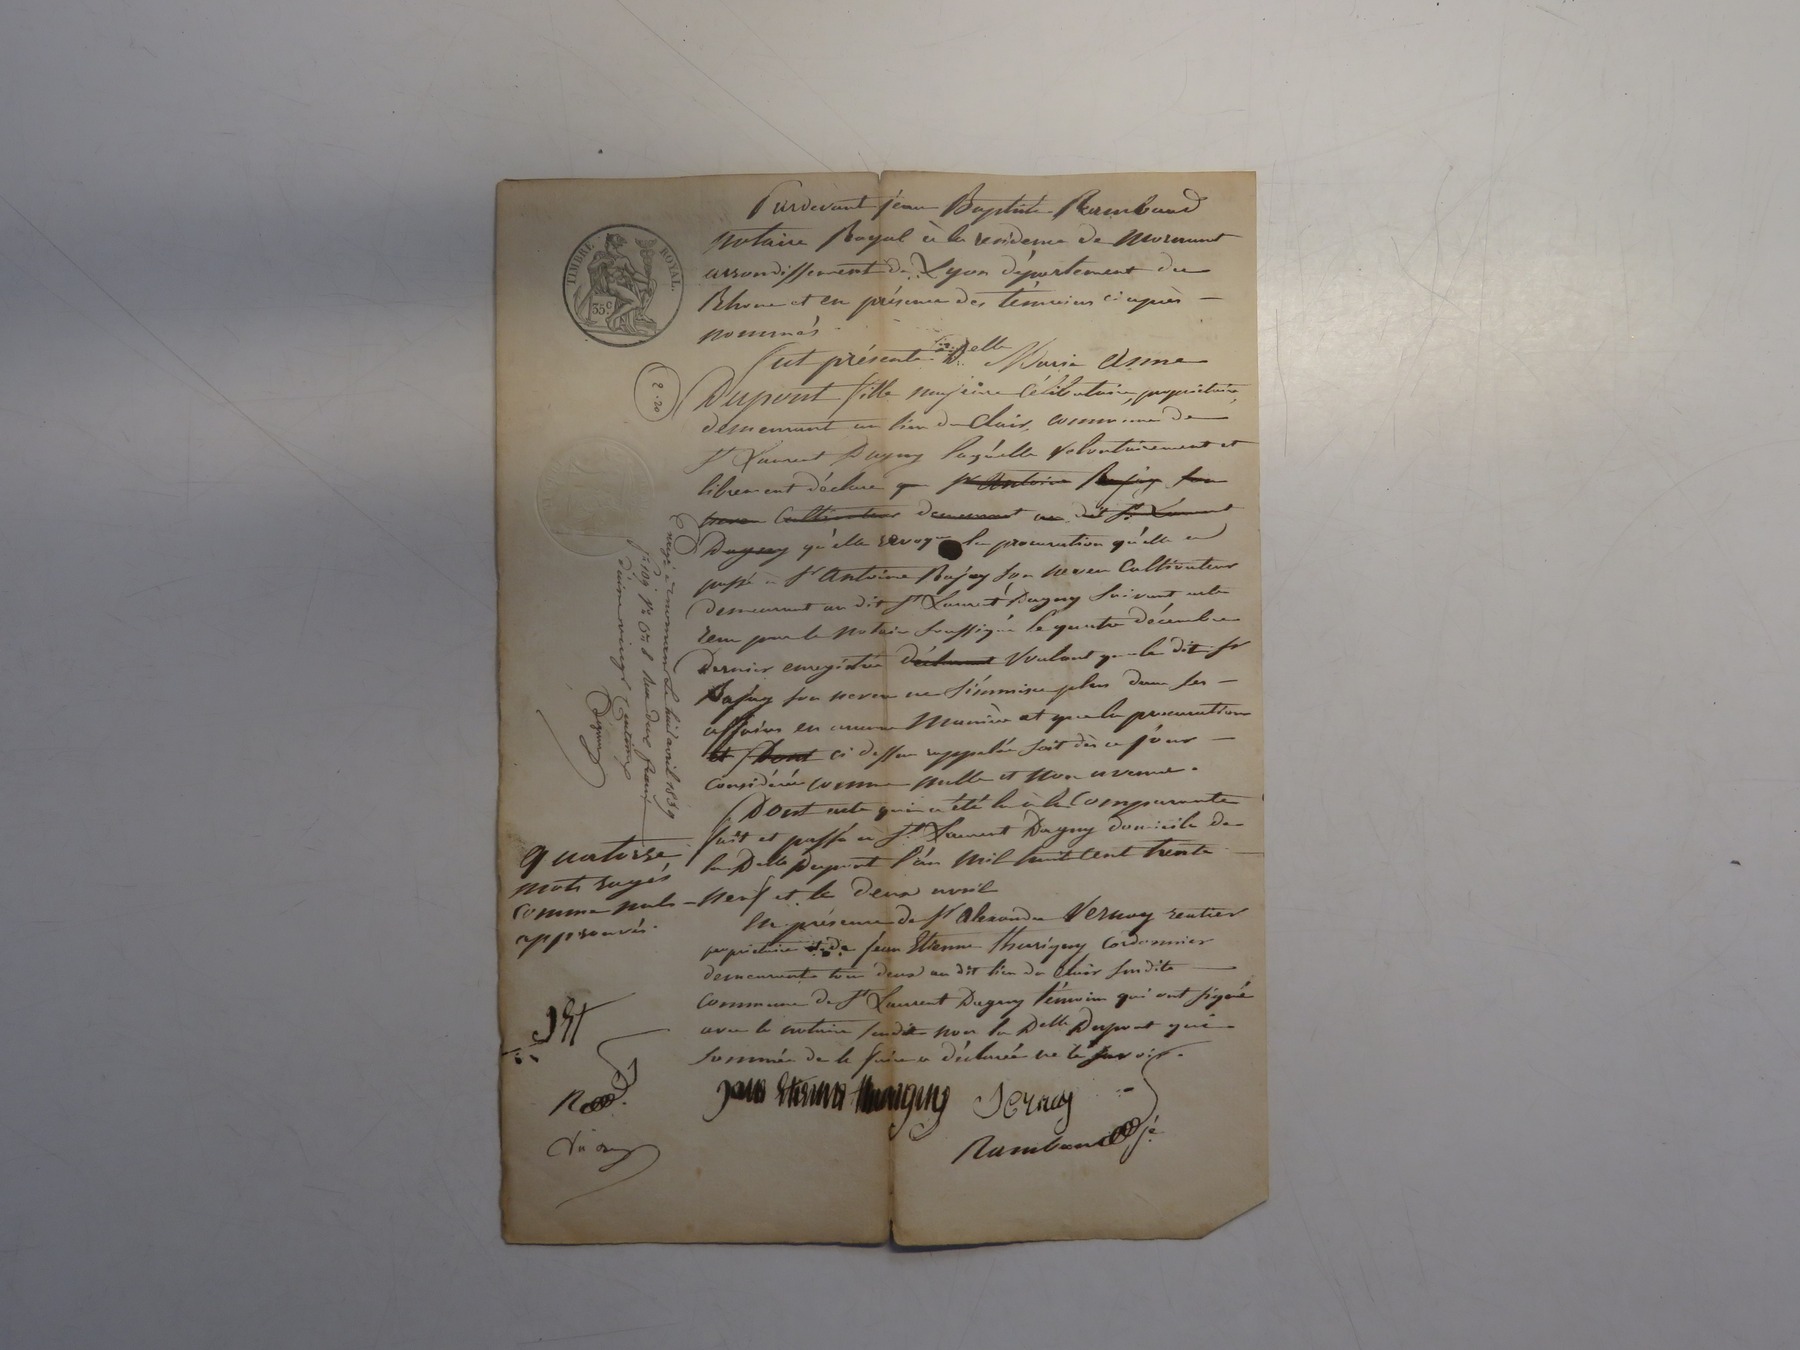 TIMBRE ROYAL.
35c
Pardevant jean Baptiste Rambaud
notaire Royal à la residence de Mornant
arrondissement de Lyon département du
Rhone et en présence des témoins ci après
nommés
fut présente delle Marie Anne
Dupont fille majeure célibataire, propriétaire,
demeurant au lieu du Clair, commune de
St Laurent Dagny laquelle volontairement et
librement déclare que sr Antoine Bajay son
neveu Cultivateur demeurant au dit St Laurent
Dagny qu'elle revoque la procuration qu'elle a
passé à Sr Antoine Bajay son neveu Cultivateur
demeurant au dit St Laurent Dagny suivant acte
recu par le notaire soussigné le quatre décembre
dernier enregistrée déclarant Voulant que le dit sr
Bajay son neveu ne s'immisce plus dans ses
affaires en aucune Manière et que la procuration
et Dont ci dessus rappelée soit dès ce jour
considérée comme nulle et non avenue.
Dont acte qui a été lu à la Comparante
fait et passé à St Laurent Dagny domicile de
la Delle Dupont l'an mil huit cent trente
neuf et le deux avril
En présence de Sr Alexandre Vernay rentier
propriétaire et de jean Etienne thurigny Cordonnier
demeurants tous deux au dit lieu du Clair susdite
commune de St Laurent Dagny témoins qui ont signé
avec le notaire susdit non la Delle Dupont qui
sommée de le faire a déclarée ne le savoir.
jean Etienne thurigny Vernay
Rambaud
2.20
à mornant le huit avril 1839
fo 109 Ro Co 8 Reçu deux francs
dixieme vingt Centimes
quatorze
mots rayés
comme nuls
approuvés.
JET